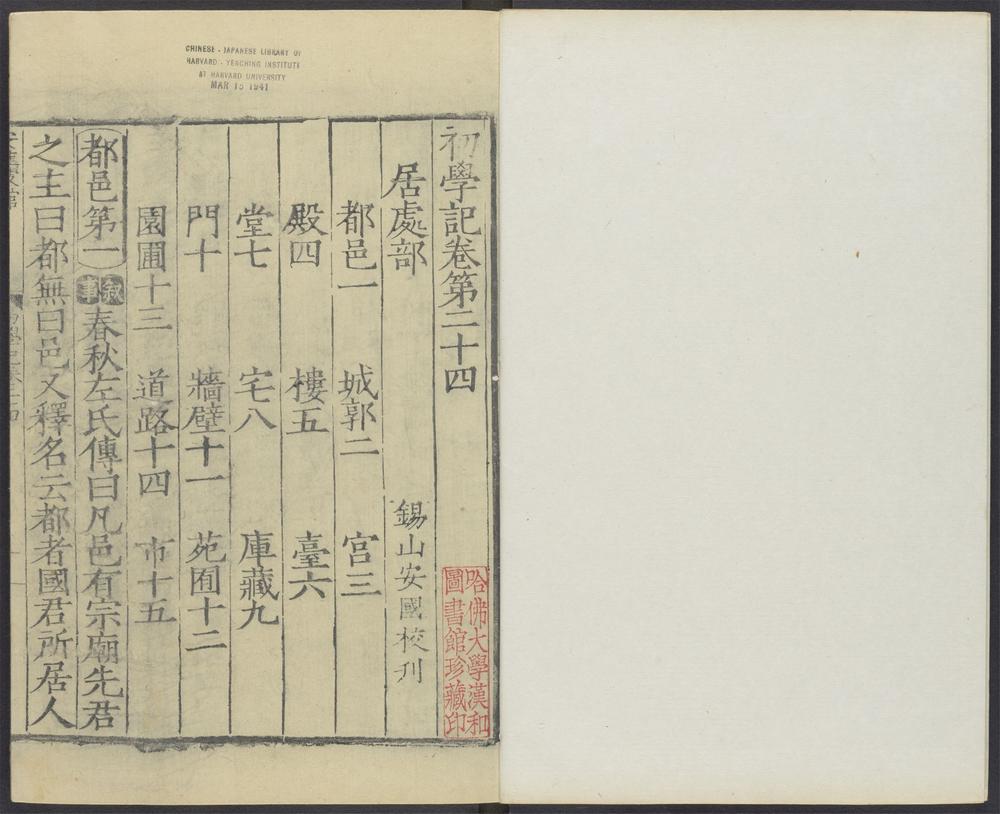 CHINESE - JAPANESE LIBRARY OF
HARVARD - YENCHING INSTITUTE
AT HARVARD UNIVERSITY
MAR 15 1941
初學記卷第二十四
哈佛大學漢和
圖書館珍藏印
居處部 錫山安國校刋
都邑一 城郭二 宫三
殿四 樓五 臺六
堂七 宅八 庫藏九
門十 牆壁十一 苑囿十二
園圃十三 道路十四 市十五
都邑第一 叙事 春秋左氏傳曰凡邑有宗廟先君
之主曰都無曰邑又釋名云都者國君所居人